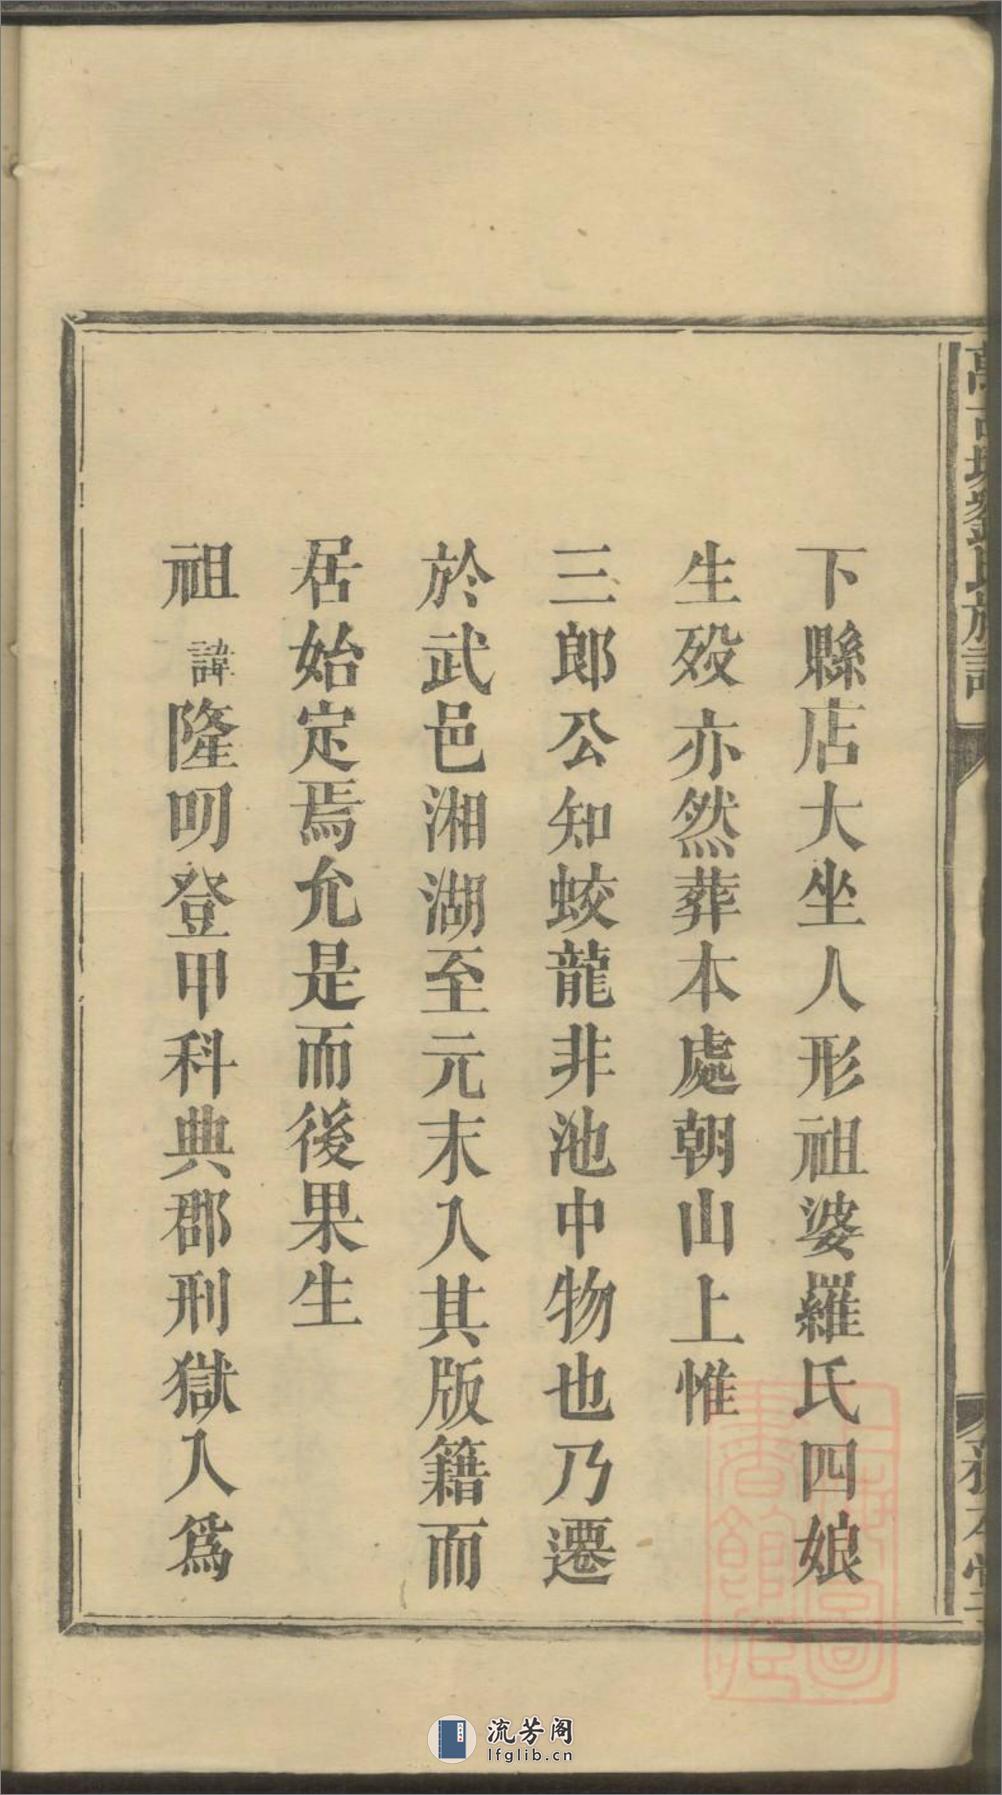 劉氏族譜
下縣店大坐人形祖婆羅氏四娘
生歿亦然葬本處朝山上惟
三郎公知蛟龍非池中物也乃遷
於武邑湘湖至元末入其版籍而
居始定焉允是而後果生
祖諱隆叨登甲科典郡刑獄人爲
流芳阁
lfglib.cn